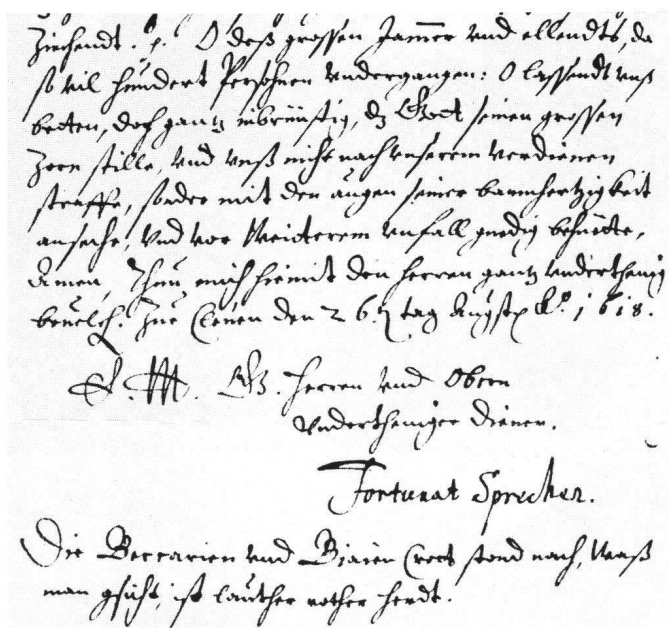 Ziechendt. p. O deß grossen Jammer vnd ellendts, da
so vil hundert Persohnen vndergangen: O lassendt vnß
betten, doch gantz inbrünstig, dz Gott seinen grossen
Zorn stille, vnd vnß nicht nach vnserem verdienen
straffe, sonder mit den augen seiner barmhertzigkeit
ansehe, vnd vor Weiterem vnfall gnedig behüette,
Amen, Thun mich hiemit den herren gantz vnderthenig
beuelch. Zue Cleuen den 26. tag Augst A.º 1618.
E. W. Gn. herren vnd Obern
Vndertheniger diener.
Fortunat Sprecher.
Die Beccarien vnd stond nach, Waß
man gsicht, ist lauther rother herdt.